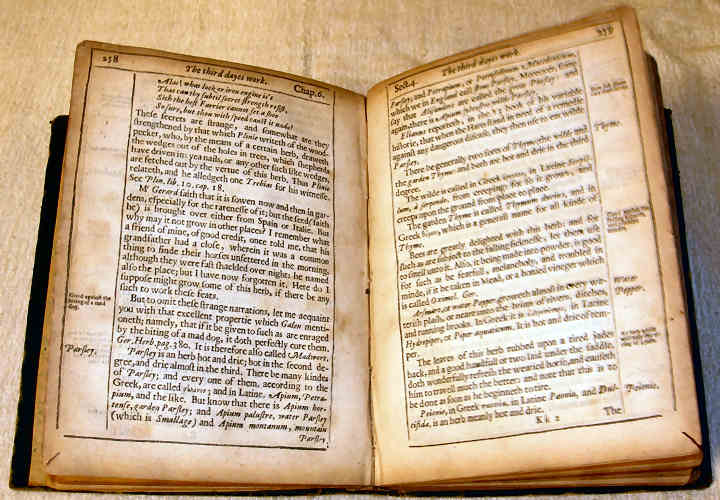 258
The third dayes work.
Chap. 6.
Alas! what lock or iron engine is't,
That can thy ſubtil ſecret ſtrength reſiſt,
Sith the beſt Farrier cannot ſet a ſhoe
So ſure, but thou with ſpeed canſt it undo?
Theſe ſecrets are ſtrange, and ſomewhat are they
ſtrengthened by that which Plinie writeth of the wood-
pecker, who, by the means of a certain herb, draweth
the wedges out of the holes in trees, which ſhepherds
have driven in: yea nails, or any other ſuch like wedges,
are fetched out by the vertue of this herb. Thus Plinie
relateth, and he alledgeth one Trebius for his witneſſe.
See Plin. lib. 10. cap. 18.
Mr Gerard ſaith that it is ſowen now and then in gar-
dens, eſpecially for the rareneſſe of it; but the ſeed (ſaith
he) is brought over either from Spain or Italie. But
why may it not grow in other places? I remember what
a friend of mine, of good credit, once told me, that his
grandfather had a cloſe, wherein it was a common
thing to finde their horſes unfettered in the morning,
although they were faſt ſhackled over night: he named
alſo the place; but I have now forgotten it. Here do I
ſuppoſe might grow ſome of this herb, if there be any
ſuch to work theſe feats.
Good againſt the
biting of a mad
dog.
But to omit theſe ſtrange narrations, let me acquaint
you with that excellent propertie which Galen menti-
oneth; namely, that if it be given to ſuch as are enraged
by the biting of a mad dog, it doth perfectly cure them.
Ger. Herb. pag. 380. It is therefore alſo called Madwort.
Parſley.
Parſley is an herb hot and drie; hot in the ſecond de-
gree, and drie almoſt in the third. There be many kindes
of Parſley; and every one of them, according to the
Greek, are called and in Latine, Apium, Petra-
pium, and the like. But know that there is Apium hor-
tenſe, garden Parſley; and Apium paluſtre, water Parſley
(which is Smallage) and Apium montanum, mountain
Parſley
Sect. 4.
The third dayes work.
259
Parſley; and Petrapium, or
which we in England call Stone Parſley. Moreover, ſome
ſay that Aliſanders are called the great Parſley: and
againſt venime Apium is good
Elianus reporteth, in the book of his variable
hiſtorie, that when the Harts ſtand in need of a remedie
againſt any dangerous diſeaſe, they then uſe to eat wilde
Parſley.
Thyme.
There be generally two ſorts of Thyme, the wilde and
the garden Thyme: and both are hot and drie in the third
degree.
The wilde is called in Greek and in Latine Serpil-
lum, à ſerpendo, from creeping; for it grows, and
creeps upon the ground from place to place.
The garden Thyme is called Thymum durius, and in
Greek which is a generall name for all kinde of
Thyme.
Bees are greatly delighted with this herb: and for
ſuch as are ſubject to the falling ſickneſſe, let them uſe
to ſmell unto it. Alſo, it being made into powder, is good
for ſuch as be fearfull, melancholy, and troubled in
minde, if it be taken in Mead, or a honied vineger which
is called Oximel. Ger.
Water
Pepper.
Arſmart, or water Pepper, groweth almoſt in every wa-
teriſh plaſh, or neare unto the brims of rivers, ditches,
and running brooks. In Greek it is in Latine
Hydropiper, or Piper aquaticum. It is hot and drie of tem-
per.
The leaves of this herb rubbed upon a tired horſes
back, and a good handfull or two laid under the ſaddle,
doth wonderfully refreſh the wearied horſe, and cauſeth
him to travell much the better: and note that this is to
be done as ſoon as he beginneth to tire.
Peionie.
Peionie, in Greek in Latine Paonia, and Dul-
ciſida, is an herb meanly hot and drie.
K k 2
The